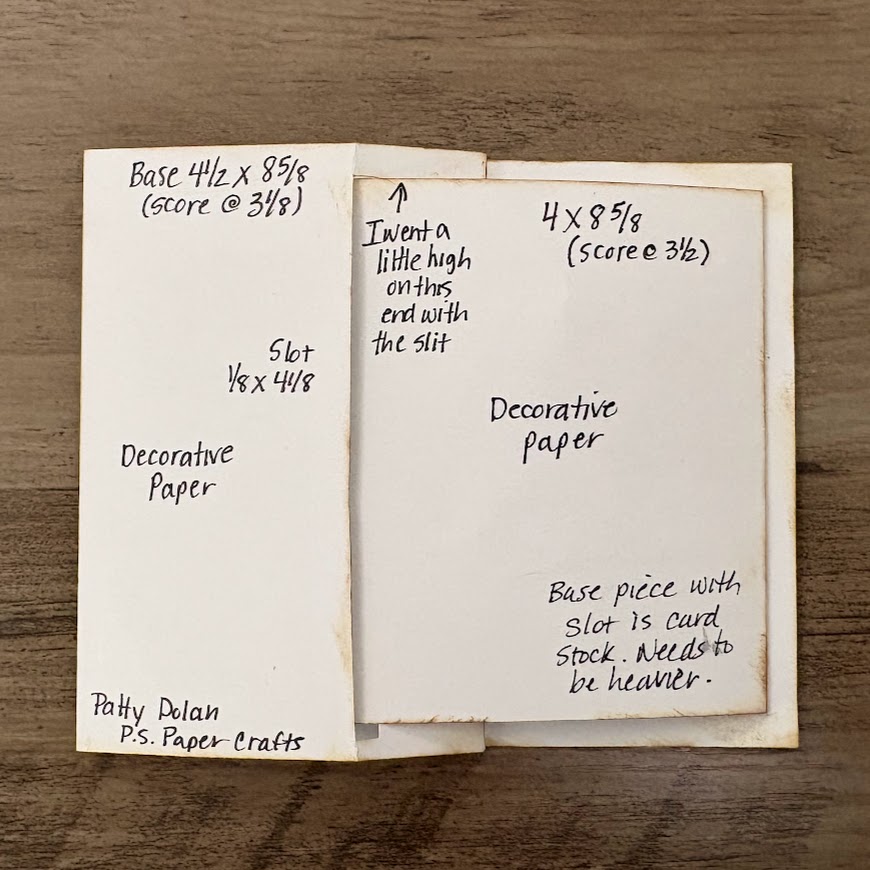 Base 4 1/2 x 8 5/8
(score @ 3 1/8)
Slot
1/8 x 4 1/8
Decorative
Paper
Patty Dolan
P.S. Paper Crafts
↑
I went a
little high
on this
end with
the slit
4 x 8 5/8
(score @ 3 1/2)
Decorative
paper
Base piece with
slot is card
stock. Needs to
be heavier.